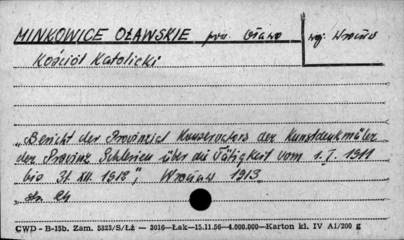 MINKOWICE OŁAWSKIE pow. Oława woj. Wrocław
Kościół Katolicki
„Bericht des Provinzial Konservators der Kunstdenkmäler
der Provinz Schlesien über die Tätigkeit vom 1. I. 1911
bis 31. XII. 1912", Wrocław 1913.
CWD - B-15b. Zam. 5323/S/Lż — 3016—Łak—15.11.56—4.000.000—Karton kl. IV A1/200 g